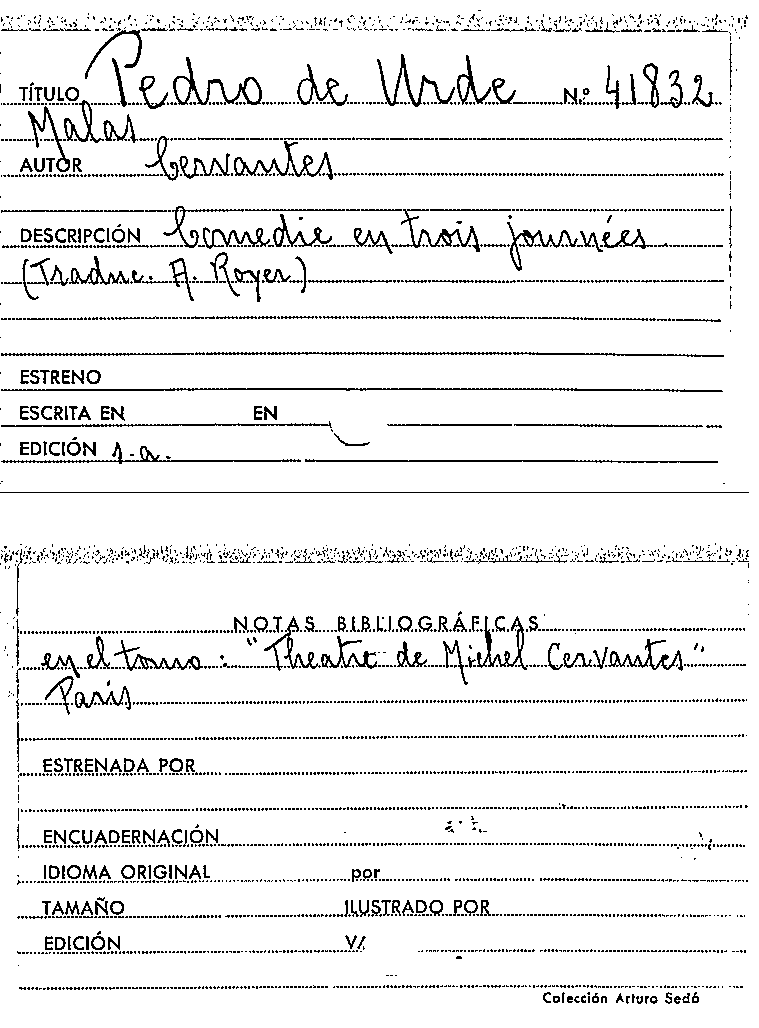 TÍTULO Pedro de Urde N.º 41832
Malas
AUTOR Cervantes
DESCRIPCIÓN Comedie en trois journées
(Traduc. A. Royer)
ESTRENO
ESCRITA EN EN
EDICIÓN s.a.
NOTAS BIBLIOGRÁFICAS
en el tomo: "Theatre de Michel Cervantes"
Paris
ESTRENADA POR
ENCUADERNACIÓN
IDIOMA ORIGINAL por
TAMAÑO ILUSTRADO POR
EDICIÓN V/.
Colección Arturo Sedó